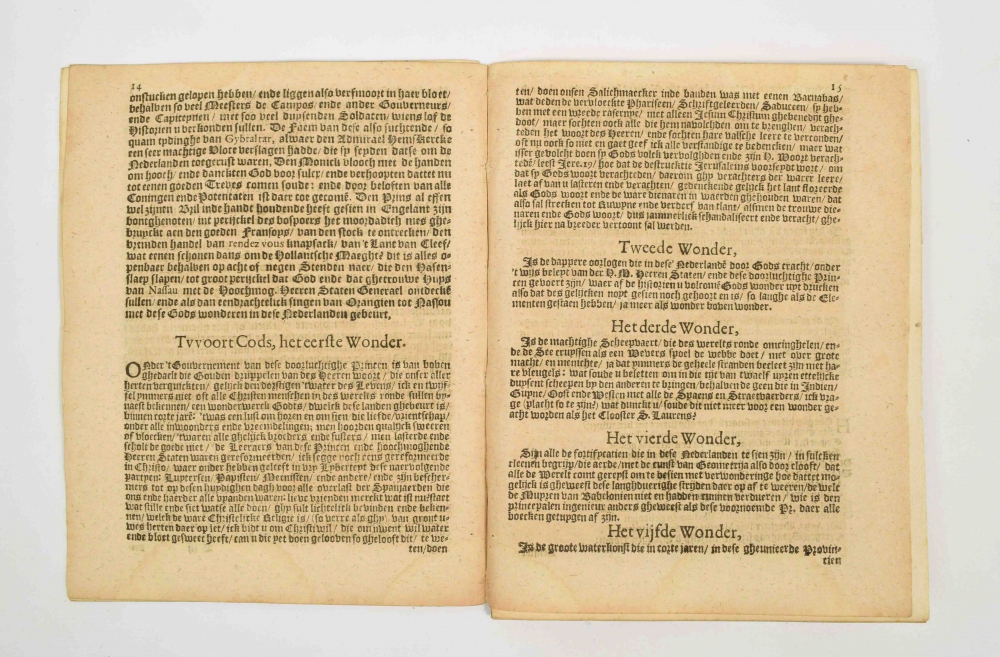 14
onstucken gelopen hebben/ ende liggen also versmoort in haer bloet/
behalven so veel Meesters de Campos/ ende ander Gouverneurs/
ende Capiteynen/ met soo veel duysenden Soldaten/ wiens lof de
Historien u verkonden sullen. De Faem van dese also luchtende/ so
quam tydinghe van Gybraltar, alwaer den Admirael Hemskercke
een seer machtige Vlote verslagen hadde/ die sy seyden datse om de
Nederlanden toegerust waren/ Den Monick vlooch met de handen
om hooch/ ende danckten God voor sulcx/ ende verhoopten dattet nu
tot eenen goeden Treves comen soude: ende door beloften van alle
Coningen ende Potentaten ist daer tot gecomē. Den Prins al essen
wel zijnen Bril in de handt houdende heeft gesien in Engelant zijn
bontghenoten/ int perijckel des bospoers het moordadich mes ghe-
bruyckt aen den goeden Fransoys/ van den stock te ontrecken/ den
vremden handel van rendez vous knapsack/ van 't Lant van Cleef/
wat eenen schonen dans om de Hollantsche Maeghē dit is alles o-
penbaer behalven op acht of negen Stenden naer/ die den Hasen-
slaep slapen/ tot groot perijckel dat God ende dat ghetrouwe Huys
van Nassau met de Hoochmog. Heeren Staten Generael ontdeckē
sullen/ ende als dan eendrachtelick singen van Orangien tot Nassou
met dese Gods wonderen in dese Nederlanden gebeurt,
Tvvoort Gods, het eerste Wonder.
ONder 't Gouvernement van dese doorluchtighe Princen is van boven
ghedaelt die Gouden druppelen van des Heeren woort/ die onser aller
herten verquickten/ gelijck den dorstigen 't water des Levens/ ick en twijf-
fel ymmers niet oft alle Christen menschen in des werelts ronde sullen by-
naest bekennen/ een wonderwerck Godts/ dwelck dese landen ghebeurt is/
binnen corte jarē: 'twas een lust om horen en om sien die liefde/ vrientschap/
onder alle inwoonders ende vreemdelingen; men hoorden qualijck sweeren
of vloecken/ 'twaren alle ghelijck broeders ende susters/ men lasterde ende
scholt de goede niet/ de Leeraers van dese Princen ende Hoochmoghende
Heeren Staten waren gereformeerden/ ick segge noch eens gereformeerde
in Christo/ waer onder hebben geleeft in vry Lyberteyt dese naervolgende
partyen: Luytersen/ Papisten/ Menisten/ ende andere/ ende zijn bescher-
mers tot op desen huydighen dagh voor alle overlast der Spanjaerden die
ons ende haerder alle vyanden waren: lieve vrienden merckt wat ist misstaet
wat stille ende siet watse alle doen/ ghy sult lichtelick bevinden ende beken-
nen/ welck de ware Christelicke Religie is/ (so verre als ghy) van gront u-
wes herten daer op let/ ick bidt u om Christi wil/ die om uwent wil water
ende bloet gesweet heeft/ can u die yet doen gelooven so ghelooft dit/ te we-
ten/ doen
15
ten/ doen onsen Salichmaecker inde banden was met eenen Barnabas/
wat deden de vervloeckte Phariseen/ Schriftgeleerden/ Saduceen/ sy heb-
ben met een wreede rasernye/ met alleen Jesum Christum ghebenedijt ghe-
doot/ maer sochten oock alle die hem navolchden om te brenghen/ verach-
teden het woort des Heeren/ ende sochten hare valsche leere te verconden/
oft nu oock so niet en gaet geef ick alle verstandige te bedencken/ maer wat
isser gevolcht doen sy Gods volck vervolghden ende zijn H. Woort verach-
tedē/ leest Jere. 19/ hoe dat de destructie Jerusalems voorseydt wort/ om
dat sy Gods woort verachteden/ daerom ghy verachters der waer leere/
laet af van u lasteren ende verachten/ gedenckende gelijck het lant floreerde
als Gods woort ende de ware dienaren in waerden ghehouden waren/ dat
also sal strecken tot Ruwyne ende verderf van tlant/ alsmen de trouwe die-
naren ende Gods woort/ dus jammerlick schandaliseert ende veracht/ ghe-
lijck hier na breeder vertoont sal werden.
Tweede Wonder,
Is de dappere oorlogen die in dese Nederlandē door Gods cracht/ onder
't wijs beleyt van der H. M. Heeren Staten/ ende dese doorluchtighe Prin-
cen gevoert zijn/ waer af de historien u volcomē Gods wonder uyt drucken
also dat des gelijcken noyt gesien noch gehoort en is/ so langhe als de Ele-
menten gestaen hebben/ ja meer als wonder boven wonder.
Het derde Wonder,
Is de machtighe Scheepvaert/ die des werelts ronde omcinghelen/ en-
de de See cruyssen als een Wevers spoel de webbe doet/ met over grote
macht/ en menichte/ ja dat ymmers de geheele stranden beeleet zijn met ha-
re vleugels: wat soude u besetten om in die tijt van twaelf uyren ettelicke
duysent scheepen by den anderen te bringen/ behalven de geen die in Indien/
Guyne/ Oost ende Westen met alle de Spaens en Straetvaerders/ ick vra-
ge (placht so te zijn?) wat dunckt u/ soude dit niet meer voor een wonder ge-
acht worden als het Clooster S. Laurens?
Het vierde Wonder,
Sijn alle de fortificatien die in dese Nederlanden te sien zijn/ in sulcken
cleenen begrijp/ die aerde/ met de const van Geometrija also door clooft/ dat
alle de Werelt comt gereyst om te besien met verwonderinge hoe dattet mo-
gelijck is gheweest dese langhduerighe strijden daer op af te weeren/ de welc
de Muyren van Babelonien niet en hadden cunnen verdueren/ wie is den
principalen ingenieur anders gheweest als dese voornoemde Pr. daer alle
boecken getuygen af zijn.
Het vijfde Wonder,
Is de groote waterkonst die in corte jaren/ in dese gheunieerde Provin-
cien